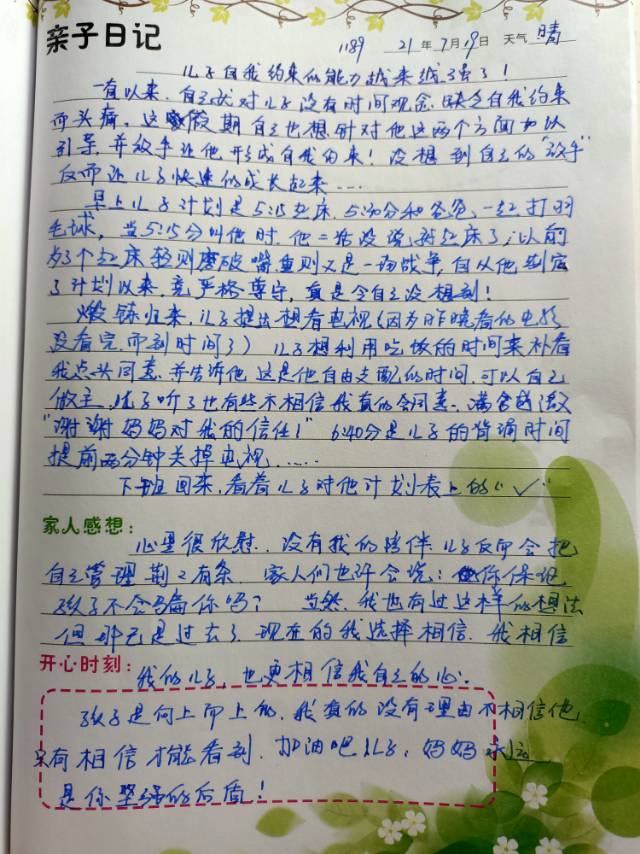 亲子日记
1189 21年7月19日 天气 晴
儿子自我约束的能力越来越强了!
一直以来,自己就对儿子没有时间观念,缺乏自我约束
而头痛,这假期自己也想针对他这两个方面加以
引导,并放手让他形成自我约束!没想到自己的"放手"
反而让儿子快速的成长起来....
早上儿子计划是5:15起床,5:30分和爸爸一起打羽
毛球,当5:15分叫他时,他二话没说就起床了,以前
为了个起床轻则磨破嘴,重则又是一场战争,自从他制定
了计划以来,竟严格尊守,真是令自己没想到!
煅练归来,儿子提出想看电视(因为昨晚看的电影
没看完,而到时间了)儿子想利用吃饭的时间来补看
我点头同意,并告诉他这是他自由支配的时间,可以自己
做主,儿子听了也有些不相信我真的会同意,满含
"谢谢妈妈对我的信任!"6:40分是儿子的背诵时间
提前两分钟关掉电视......
下班回来,看着儿子对他计划表上的"✓"
家人感想:
心里很欣慰..没有我的陪伴儿子反而会把
自己管理荆之有条.家人们也许会说:你保证
孩子不会骗你吗?当然,我也有过这样的想法
但那已是过去了,现在的我选择相信.我相信
开心时刻:
我的儿子,也更相信我自己的心..
孩子是向上而上的,我真的没有理由不相信他
只有相信才能看到.加油吧儿子,妈妈永远
是你坚强的后盾!